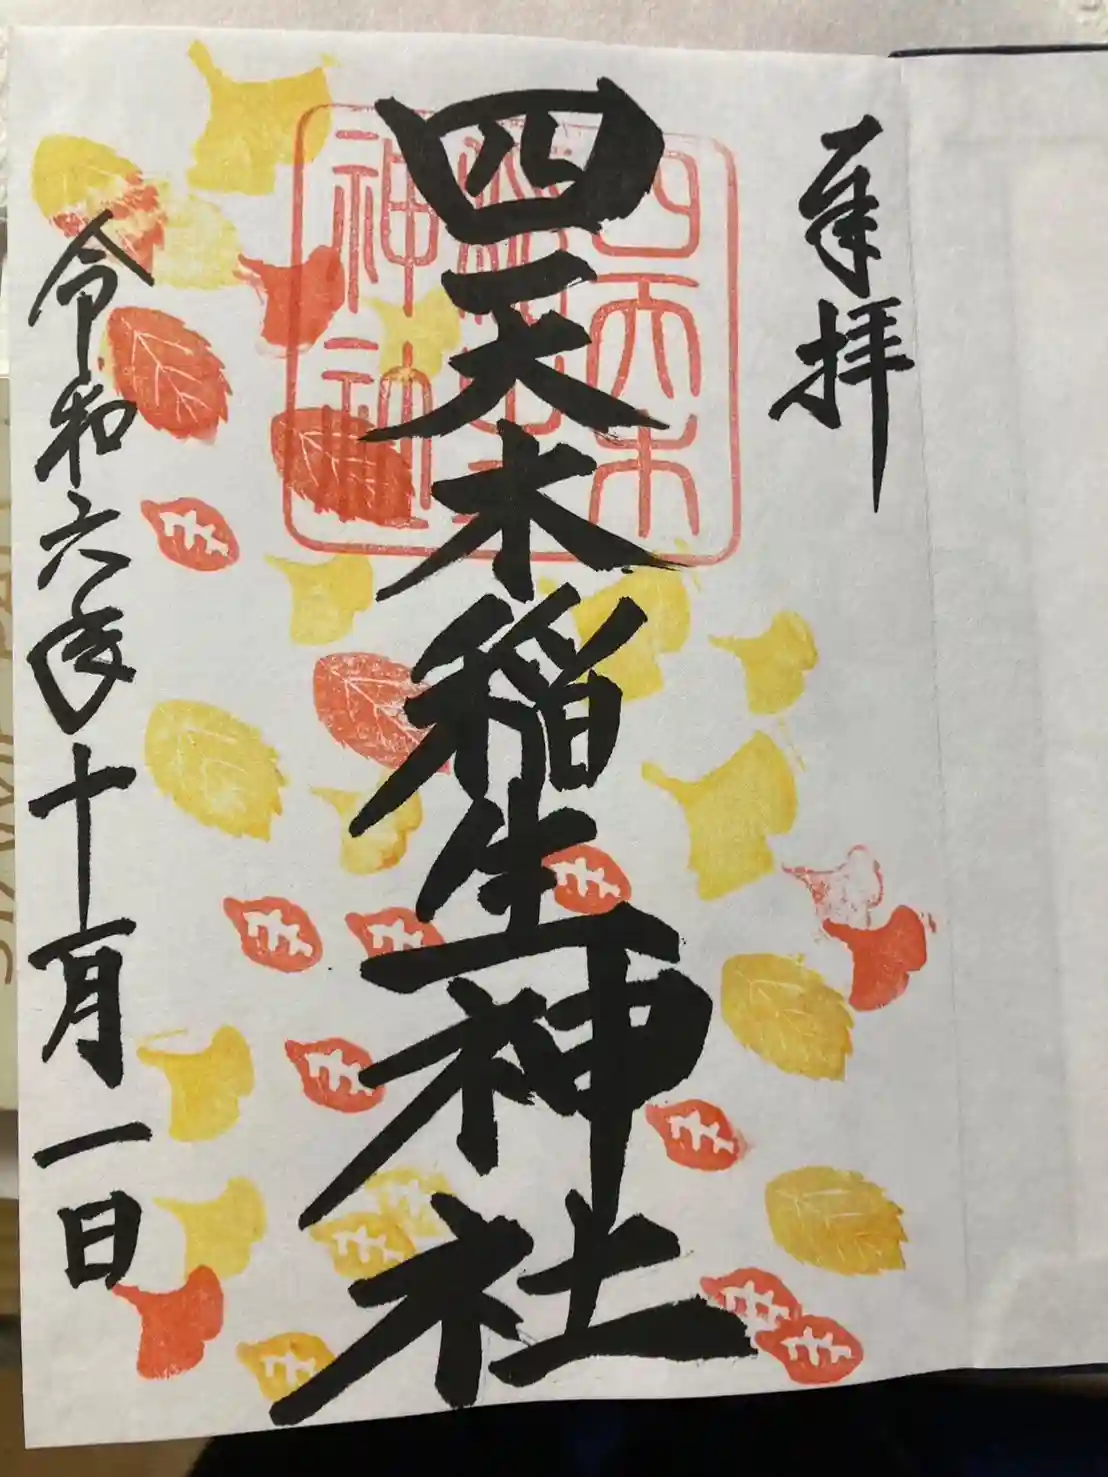 奉拝
四天木稲生神社
令和六年十一月一日
四天木
神社